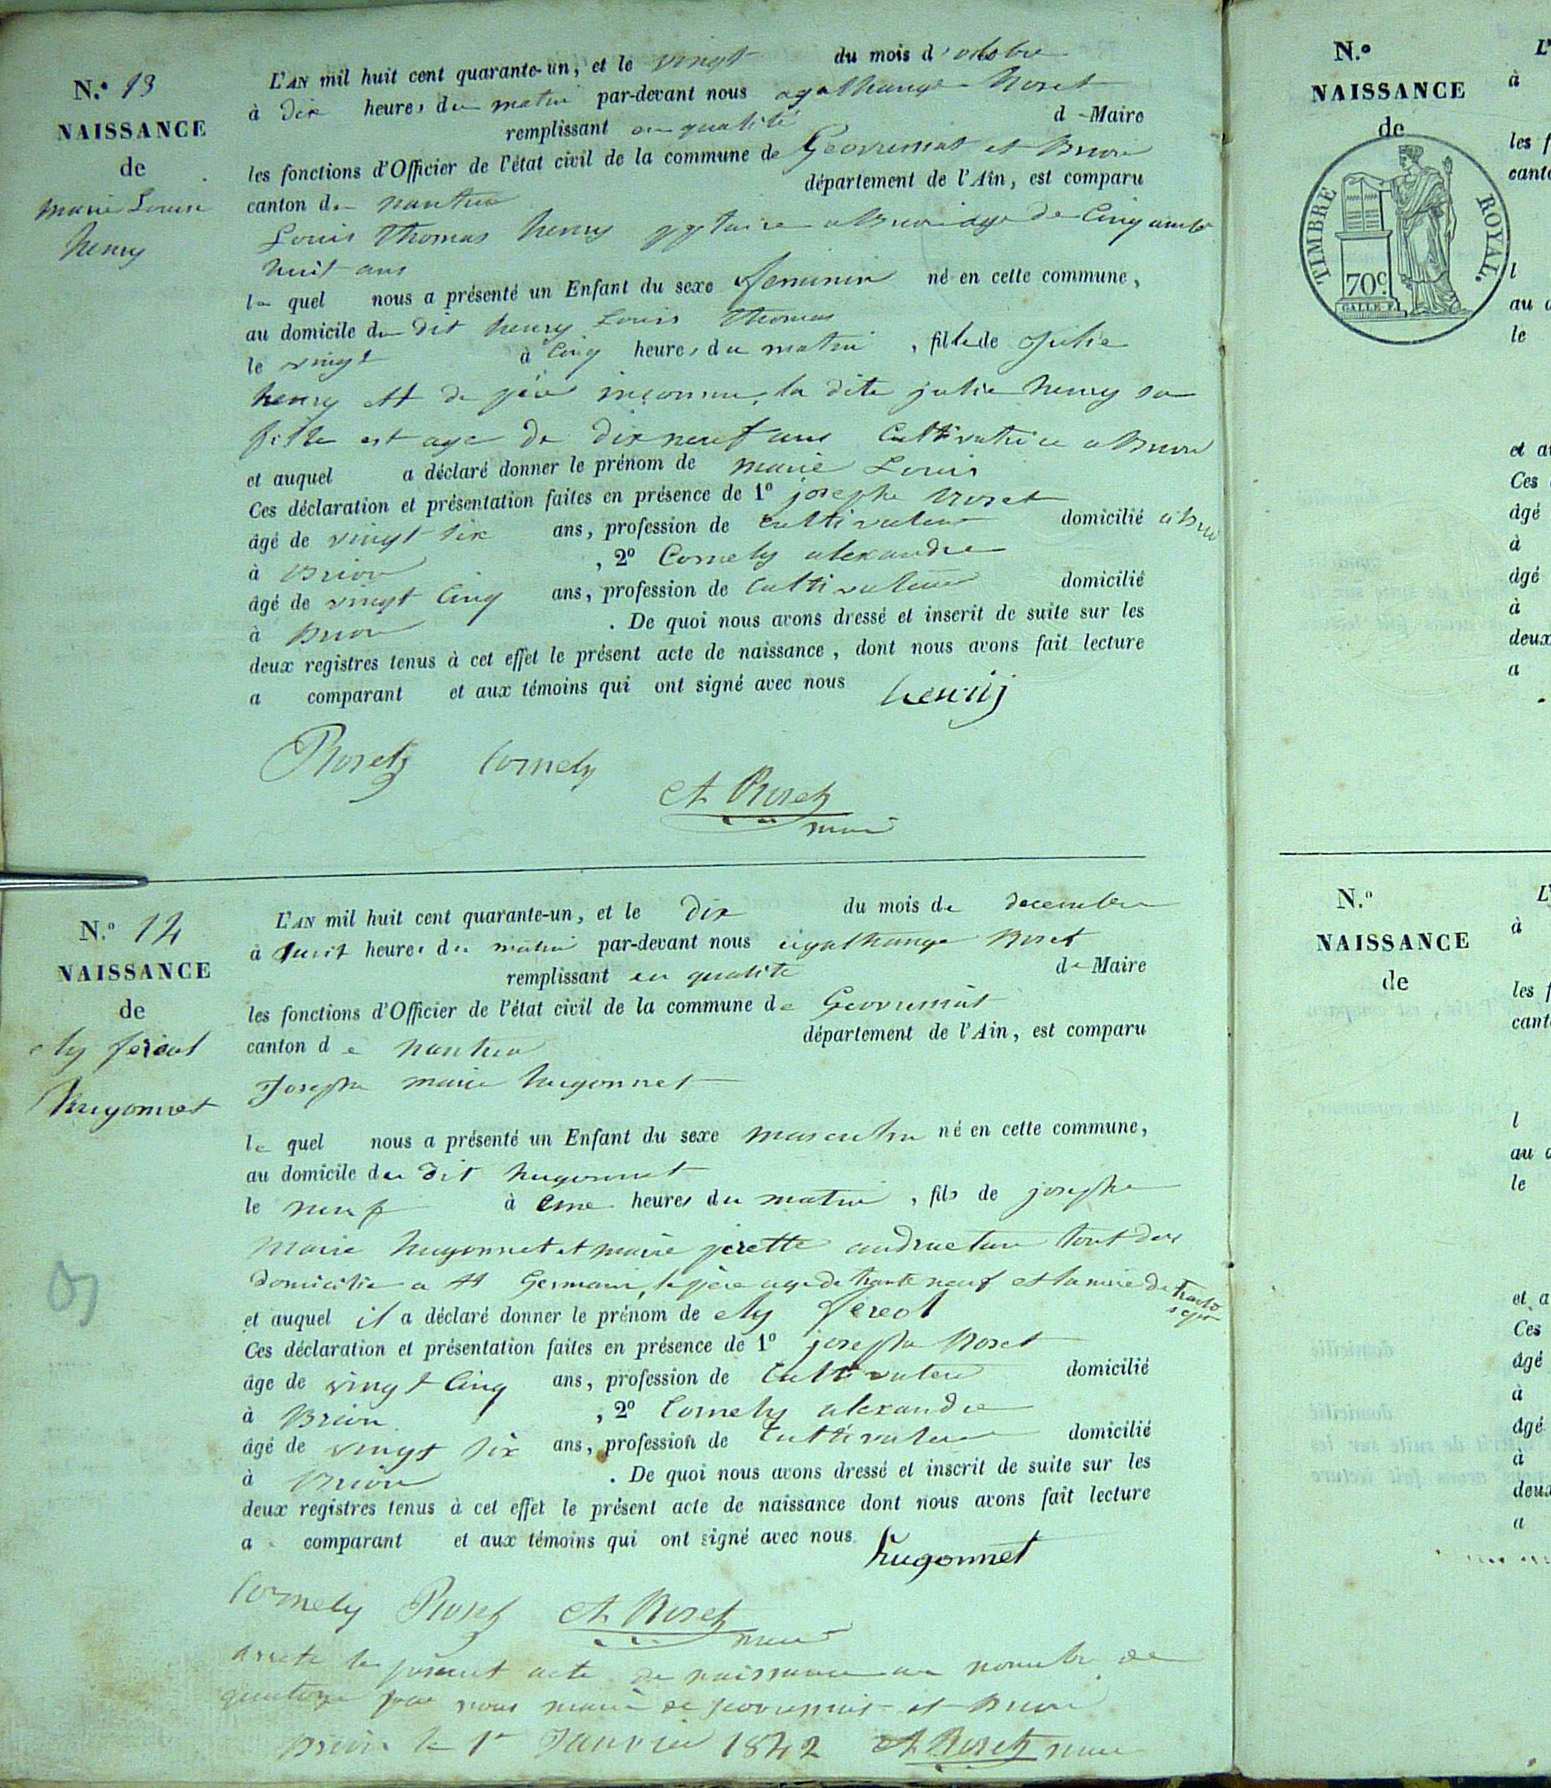 N.º 13
NAISSANCE
de
marie Louise
henry
L'AN mil huit cent quarante-un, et le vingt du mois d'octobre
à dix heures du matin par-devant nous agathange Roset
remplissant en qualité de Maire
les fonctions d'Officier de l'état civil de la commune de Geovressiat et Brion
canton de nantua département de l'Ain, est comparu
Louis thomas henry a Brion age de Cinquante
huit ans
le quel nous a présenté un Enfant du sexe feminin né en cette commune,
au domicile du dit henry Louis thomas
le vingt à Cinq heures du matin, fille de Julie
henry et de père inconnu, la dite julie henry sa
fille est age de dix neuf ans Cultivatrice a Brion
et auquel a déclaré donner le prénom de marie Louis
Ces déclaration et présentation faites en présence de 1º josephe Roset
âgé de vingt six ans, profession de cultivateur domicilié a Brion
à Brion, 2º Cornely alexandre
âgé de vingt Cinq ans, profession de Cultivateur domicilié
à Brion. De quoi nous avons dressé et inscrit de suite sur les
deux registres tenus à cet effet le présent acte de naissance, dont nous avons fait lecture
a comparant et aux témoins qui ont signé avec nous henrÿ
Rosetz Cornely
At Rosetz
maire
N.º 14
NAISSANCE
de
ely fereol
hugonnet
L'AN mil huit cent quarante-un, et le dix du mois de decembre
à huit heures du matin par-devant nous agathange Roset
remplissant en qualité de Maire
les fonctions d'Officier de l'état civil de la commune de Geovressiat
canton de nantua département de l'Ain, est comparu
Josephe marie hugonnet
le quel nous a présenté un Enfant du sexe masculin né en cette commune,
au domicile du dit hugonnet
le neuf à une heures du matin, fils de josephe
marie hugonnet et marie pierette tout deux
domicilie a St Germain, le père age de trante neuf et la mere de trante
sept
et auquel il a déclaré donner le prénom de ely fereol
Ces déclaration et présentation faites en présence de 1º josephe Roset
âge de vingt Cinq ans, profession de Cultivateur domicilié
à Brion, 2º Cornely alexandre
âgé de vingt six ans, profession de Cultivateur domicilié
à Brion. De quoi nous avons dressé et inscrit de suite sur les
deux registres tenus à cet effet le présent acte de naissance dont nous avons fait lecture
a comparant et aux témoins qui ont signé avec nous. hugonnet
Cornely Rosetz At Rosetz
maire
arrete le present acte de naissance au nombre de
quatorze par nous maire de Geovressiat et Brion
Brion le 1er Janvier 1842 At Rosetz maire
N.º
NAISSANCE
de
TIMBRE ROYAL.
70c.
N.º
NAISSANCE
de